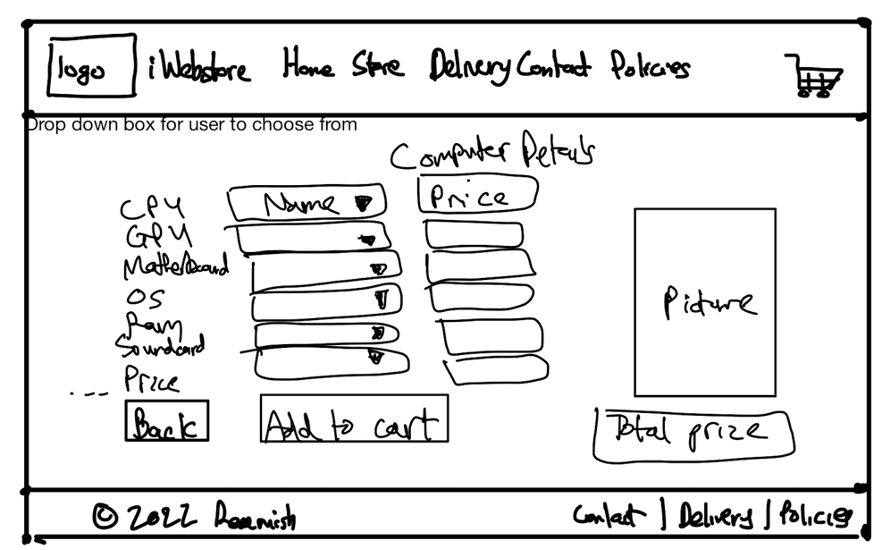 logo iWebstore Home Store Delivery Contact Policies
Drop down box for user to choose from
Computer Details
CPU Name Price
GPU
Motherboard
OS
Ram
Soundcard
Price
Picture
Back Add to cart
Total prize
© 2022
Contact | Delivery | Policies